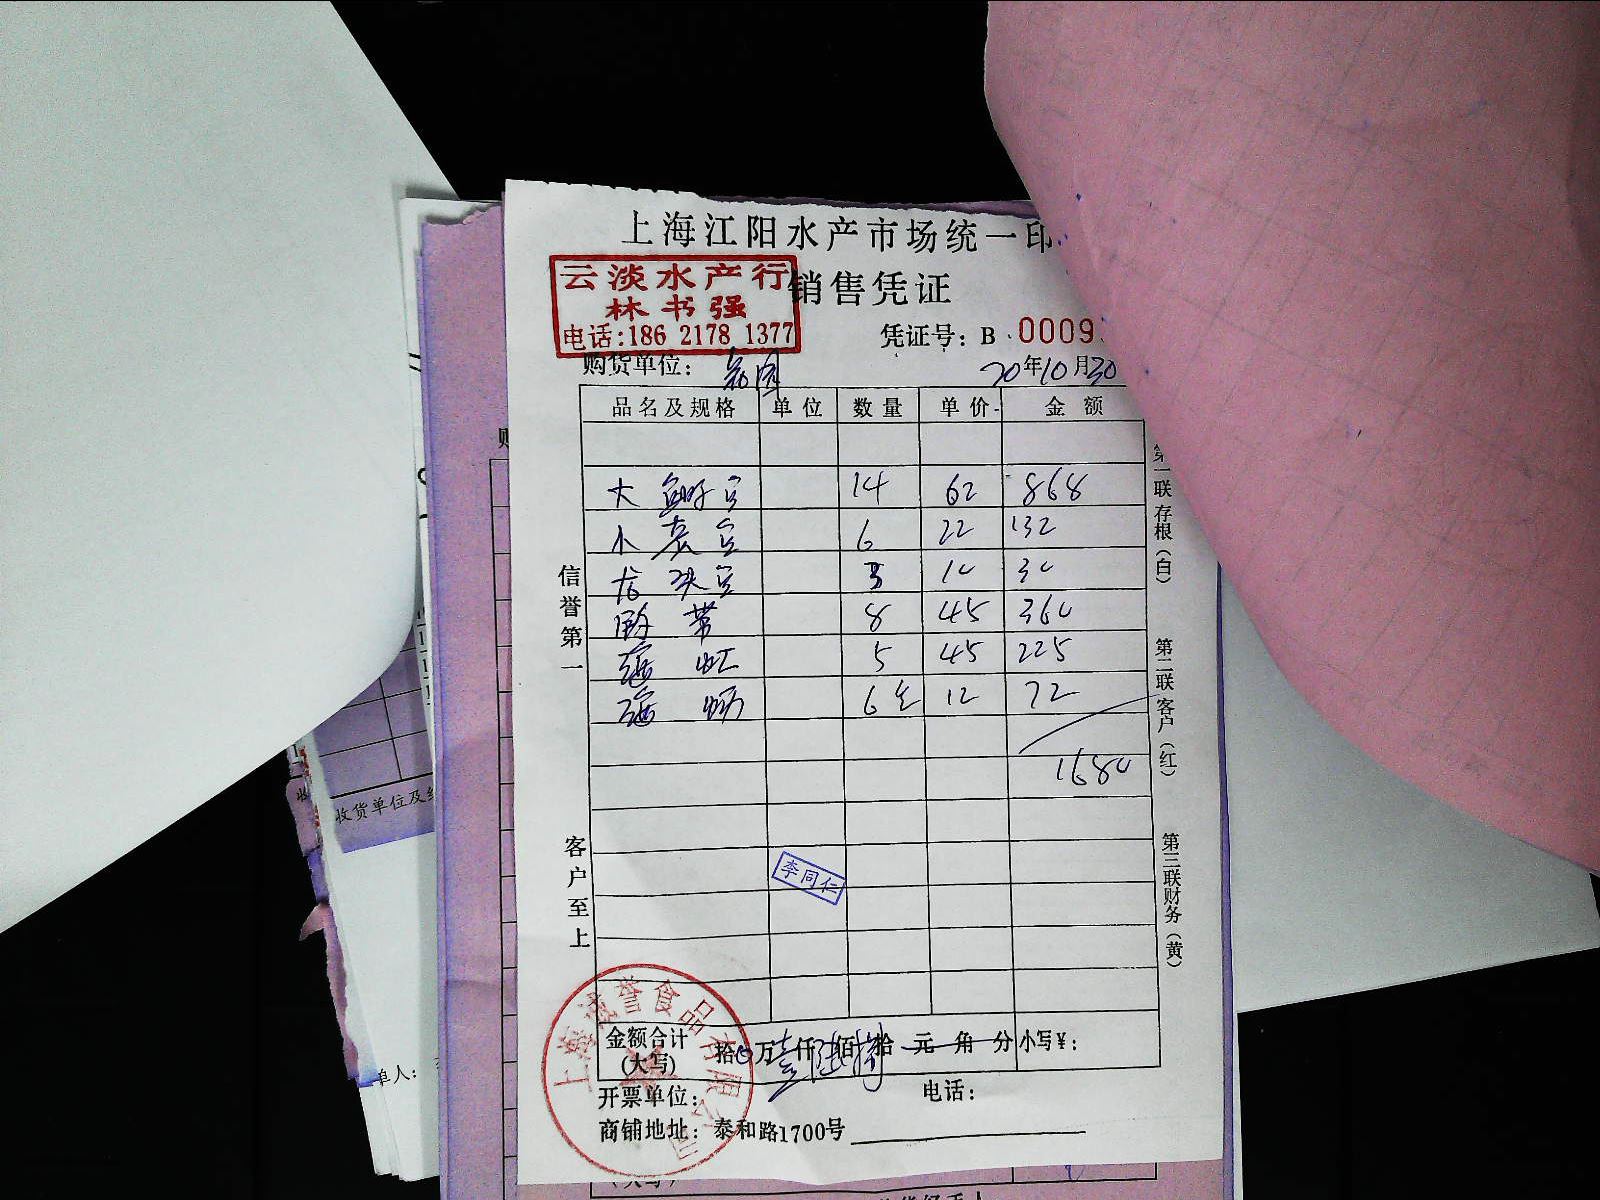 上海江阳水产市场统一印
云淡水产行
林书强
电话:186 2178 1377
销售凭证
凭证号：B 0009
购货单位：
20年10月30
品名及规格 单位 数量 单价 金额
大 14 62 868
小 6 22 132
龙头 3 10 30
8 45 360
5 45 225
6 12 72
1680
信誉第一
客户至上
第一联存根（白）
第二联客户（红）
第三联财务（黄）
李同仁
上海诚誉食品有限公司
金额合计
(大写)
拾 万 壹仟 陆佰 捌拾 元 角 分 小写¥：
开票单位：
电话：
商铺地址：泰和路1700号
收货单位及
单人：